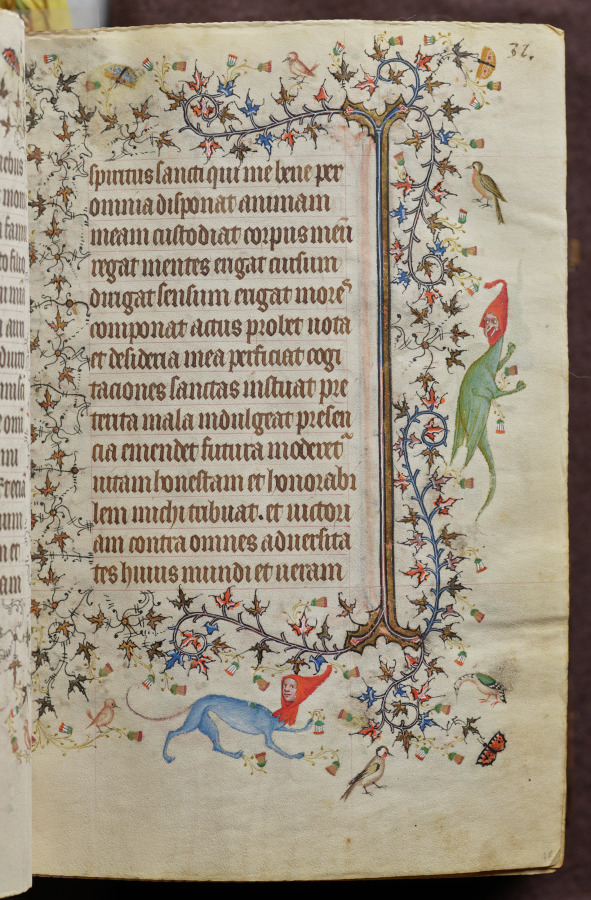 32.
spiritus sancti qui me bene per
omnia disponat animam
meam custodiat corpus meū
regat mentes erigat cursum
dirigat sensum erigat moreˢ
componat actus probet uota
et desideria mea perficiat cogi
taciones sanctas instituat pre
terita mala indulgeat presen
cia emendet futura moderet᷑
uitam honestam et honorabi
lem michi tribuat. et uictori
am contra omnes aduersita
tes huius mundi et ueram